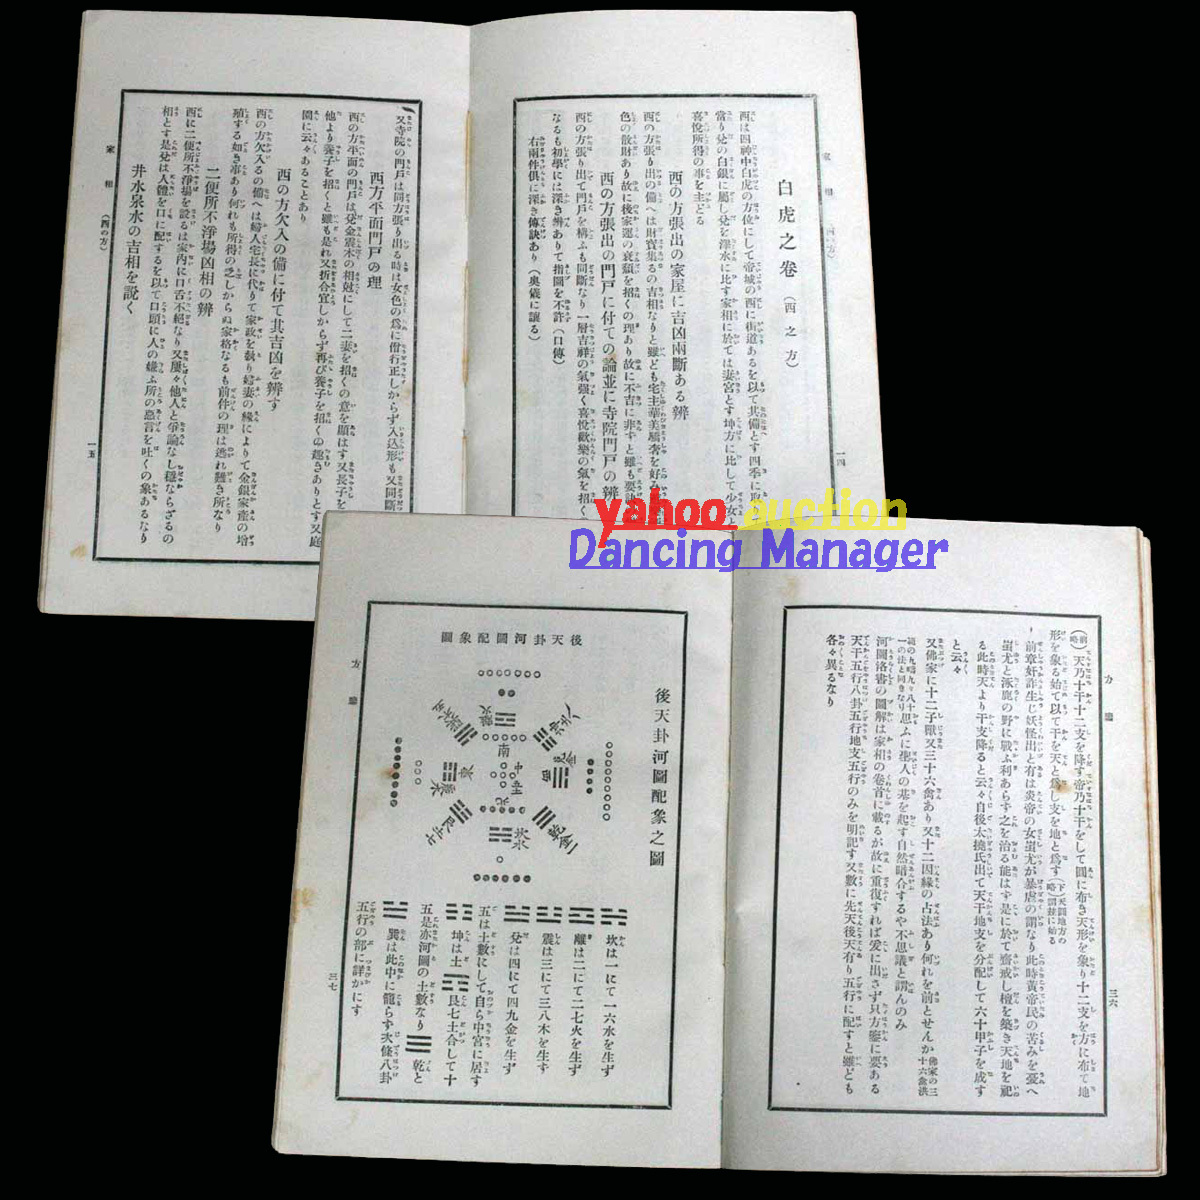 家相 (西の方)
一四
白虎之卷 (西之方)
西は四神中白虎の方位にして帝城の西に街道あるを以て其備とす四季に取
當り兌の白銀に屬し兌を澤水に比す家相に於ては妻宮とす坤方に比して少女と
喜悅所得の事を主どる
西の方張出の家屋に吉凶兩斷ある辨
西の方張り出の備へは財寶集るの吉相なりと雖ども宅主華美驕奢を好み
色の散財あり故に後家運の衰頽を招くの理あり故に不吉に非ずと雖も要訣
西の方張出の門戸に付ての論並に寺院門戸の辨
西の方張り出て門戸を構ふも同斷なり一層吉祥の氣强く喜悅歡樂の氣を招く
なるも初學には深き辨ありて指圖を不許(口傳)
右兩件俱に深き傳訣あり(奧儀に讓る)
又寺院の門戸は同方張り出る時は女色の爲に僧行正しからず入込形も又同斷
西方平面門戸の理
西の方平面の門戸は兌金震木の相尅にして二妻を招くの意を顯はす又長子を
他より養子を招くと雖も是れ又折合宜しからず再び養子を招くの趣きありとす又庭
園に云々あることあり
西の方欠入の備に付て其吉凶を辨す
西の方欠入るの備へは婦人宅長に代りて家政を執り婦妻の緣によりて金銀家產の增
殖する如き事あり何れも所得の乏しからぬ家格なるも前件の理は逃れ難き所なり
二便所不淨場凶相の辨
西に二便所不淨場を設るは家內に口舌不絕なり又屢々他人と爭論なし穩ならざるの
相とす是兌は人體を口に配するを以て口頭に人の嫌ふ所の惡言を吐くの象あるなり
井水泉水の吉相を說く
家相 (西の方)
一五
yahoo auction
Dancing Manager
方鑒
三六
(前略)天乃十干十二支を降す帝乃十干をして圓に布き天形を象り十二支を方に布て地
形を象る始て以て干を天と爲し支を地と爲す(下略)
前章奸詐生じ妖怪出と有は炎帝の女蚩尤が暴虐の謂なり此時黃帝民の苦みを憂へ
蚩尤と涿鹿の野に戰ふ利あらず之を治る能はず是に於て齋戒し壇を築き天地を祀
る此時天より干支降ると云々自後太撓氏出て天干地支を分配して六十甲子を成す
と云々
又佛家に十二子獸又三十六禽あり又十二因緣の占法あり何れを前とせんか
思ふに聖人の基を起す自然暗合するや不思議と謂んのみ
河圖洛書の圖解は家相の卷首に載るが故に重復すれば爰に出さず只方鑒に要ある
天干五行八卦五行地支五行のみを明記す又數に先天後天有り五行に配すと雖ども
各々異るなり
後天卦河圖配象之圖
後天卦河圖配象圖
南
離火
兌金
西
乾金
坎水
北
中
東
震木
艮土
坎は一にて一六水を生ず
離は二にて二七火を生ず
震は三にて三八木を生ず
兌は四にて四九金を生ず
五は土數にして自ら中宮に居す
坤は土 艮七土合して十
五是亦河圖の土數なり 乾と
巽は此中に籠らず次條八卦
五行の部に詳かにす
方鑒
三七